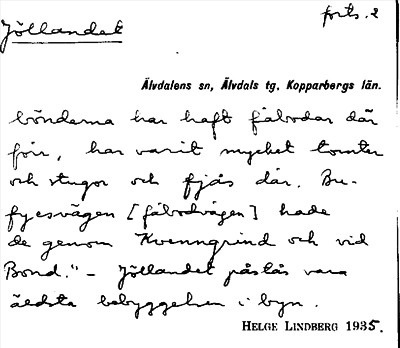 forts. 2
Jöllandet
Älvdalens sn, Älvdals tg. Kopparbergs län.
bönderna har haft fäbodar där
förr, har varit mycket tomter
och stugor och fjås där. Bu-
fycsvägen [fäbodvägen] hade
de genom Kvenngrind och vid
Bond." - Jöllandet påstås vara
äldsta bebyggelsen i byn.
HELGE LINDBERG 1935.